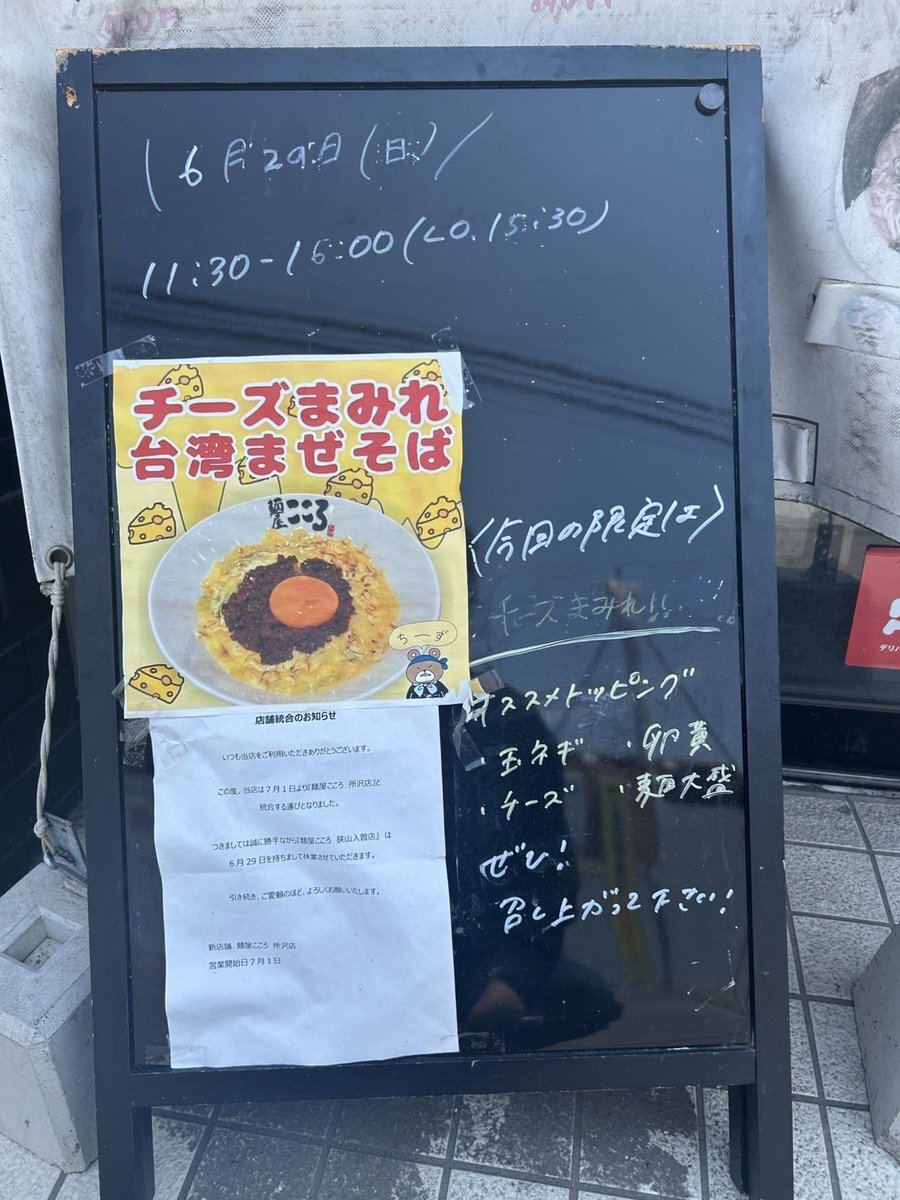 \ 6月29日(日) /
11:30-15:00(LO.15:30)
チーズまみれ
台湾まぜそば
麺屋こころ
ちーず
〈今回の限定は〉
チーズまみれ!!
オススメトッピング
・玉ネギ ・卵黄
・チーズ ・麺大盛
ぜひ!
召し上がって下さい!
店舗統合のお知らせ
いつも当店をご利用いただきありがとうございます。
この度、当店は7月1日より『麺屋こころ 所沢店』と
統合する運びとなりました。
つきましては誠に勝手ながら『麺屋こころ 狭山入曽店』は
6月29日を持ちまして休業させていただきます。
引き続き、ご愛顧のほど、よろしくお願いいたします。
新店舗 麺屋こころ 所沢店
営業開始日7月1日
デリバ